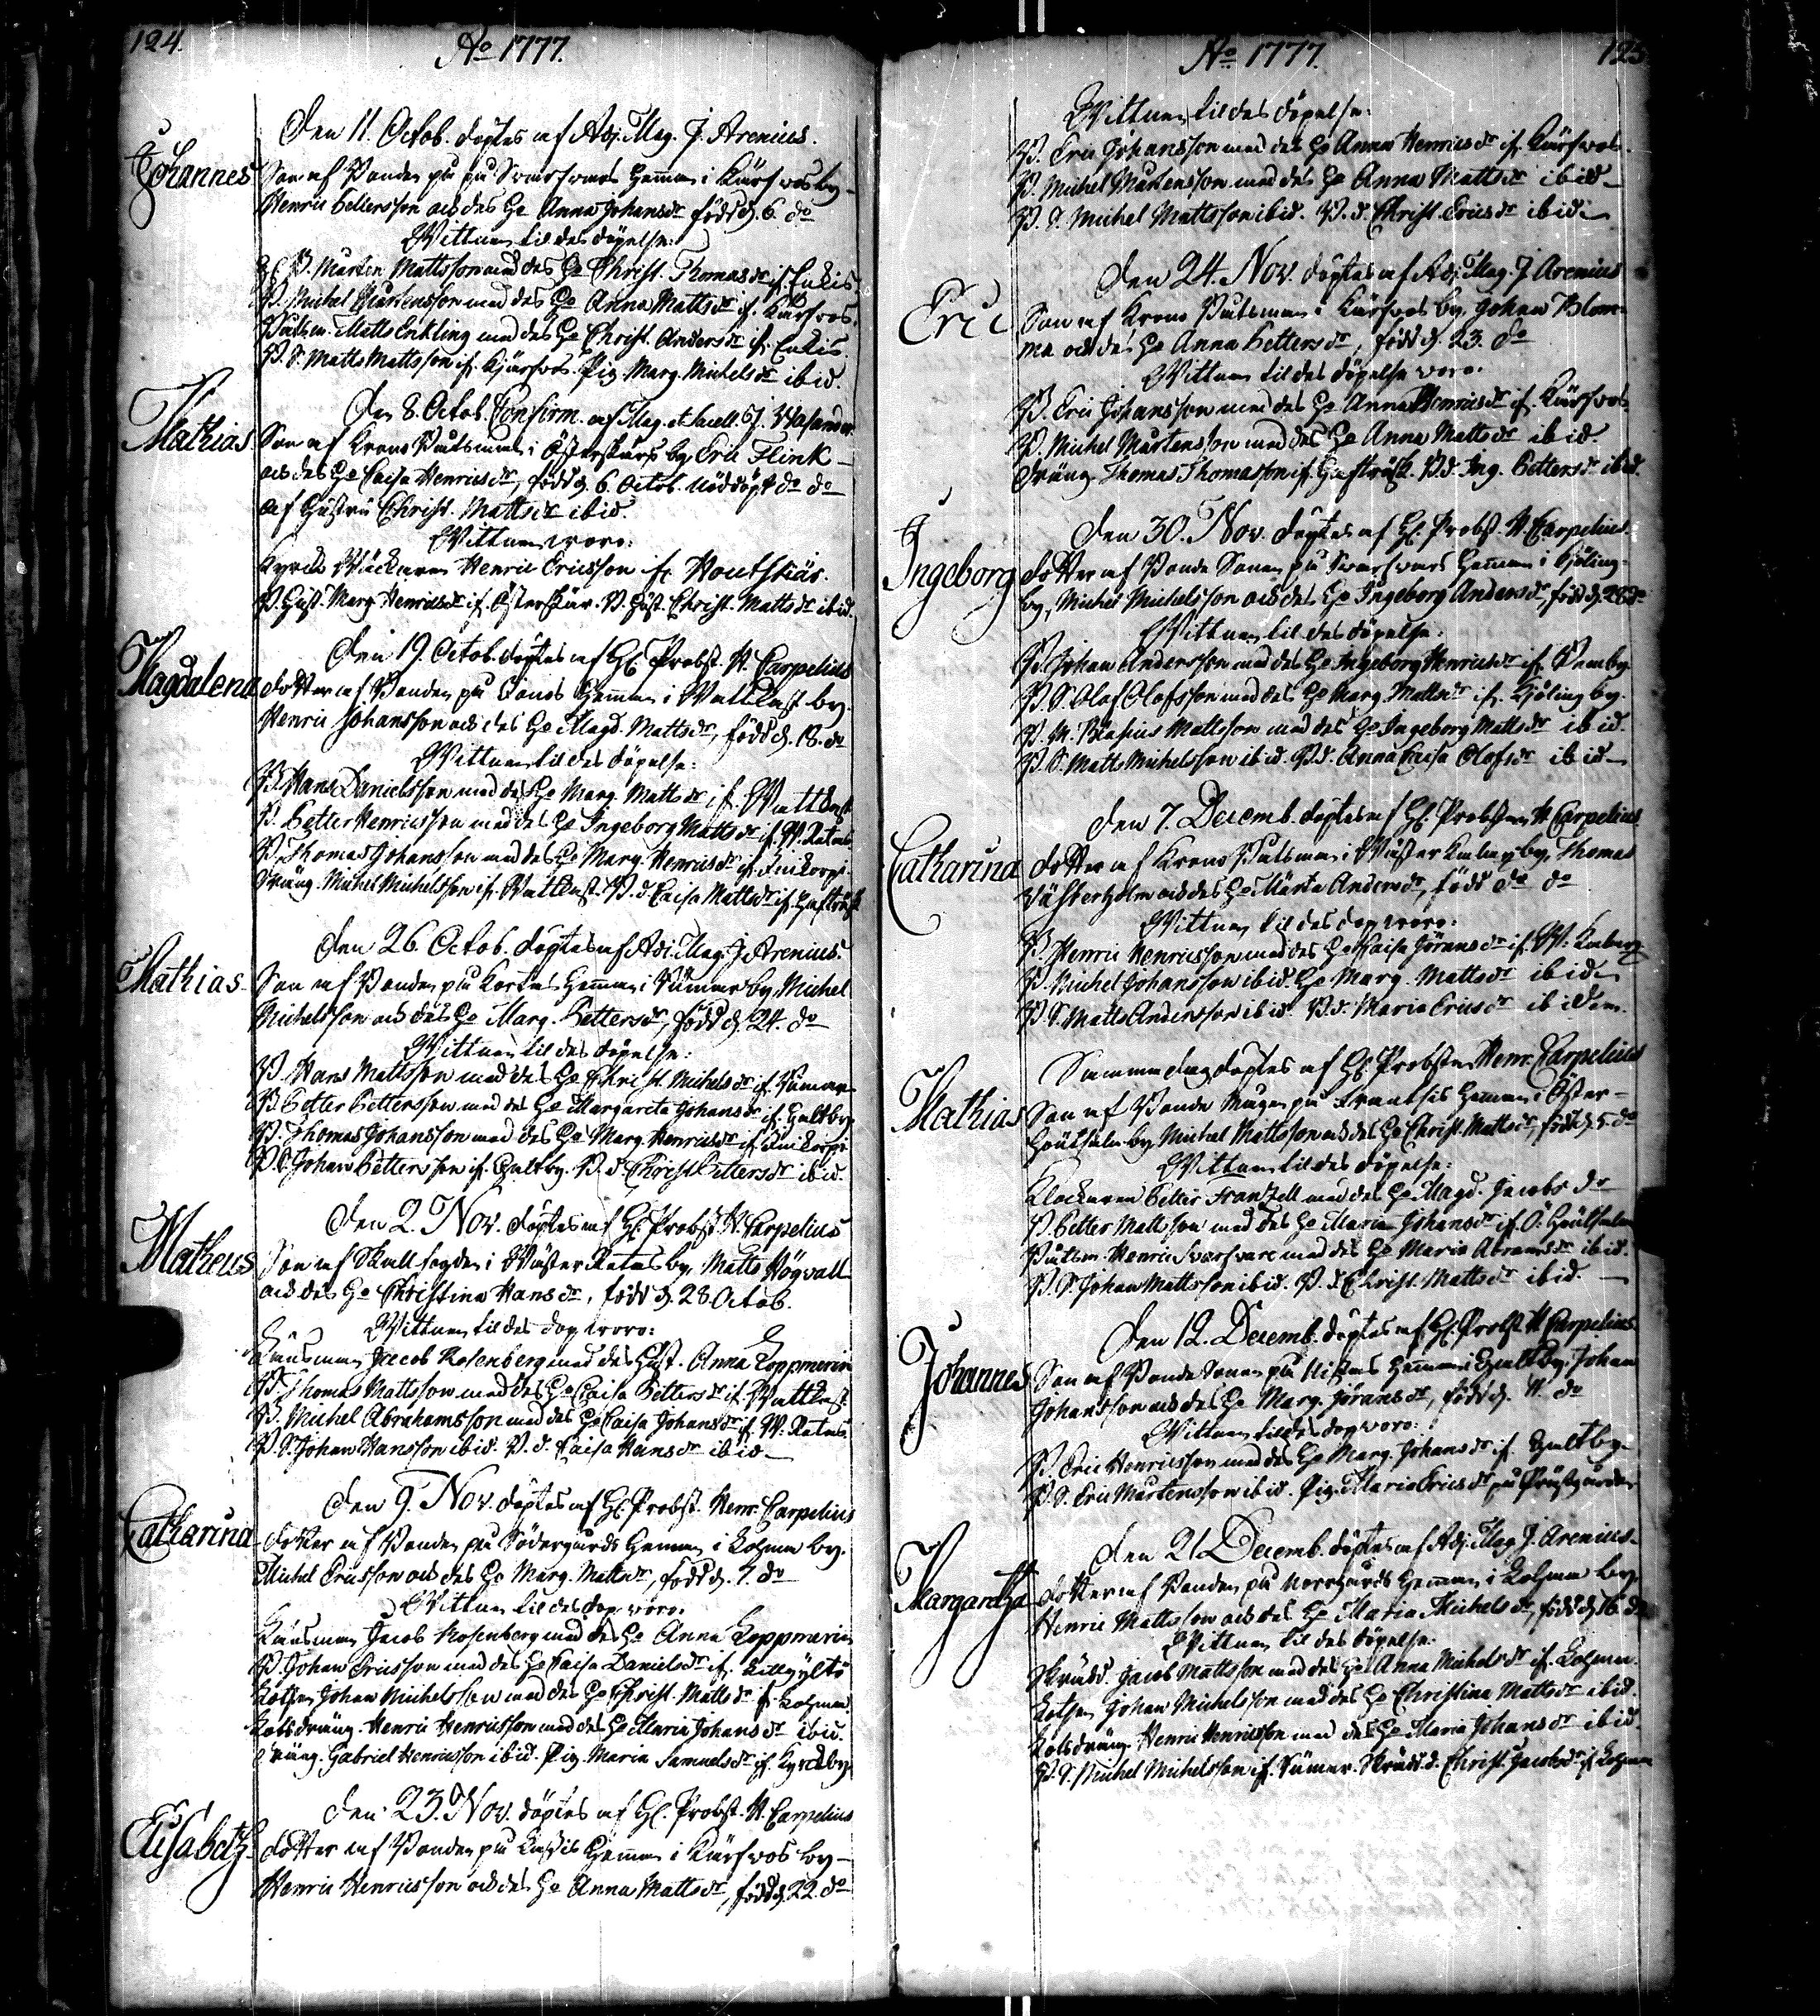 124.
Ao 1777.
Den 11. Octob. döptes af Adj. Mag. J. Arenius.
Johannes
Son af Bonden på Hemman i by
Henric Pettersson och des Ho Anna Johansdr född d. 6. do
Wittnen til des döpelse:
B. Mårten Mattsson med des Ho Christ. Thomasdr if.
B. Michel Mårtensson med des Ho Anna Mattsdr if.
Båtsm. Matts Enkling med des Ho Christ. Andersdr if.
B. S. Matts Mattsson if. Pig. Marg. Michelsdr ibid.
Den 8. Octob. Confirm. af Mag. et Sacell. J.
Mathias
Son af Krono Båtsman i by, Eric Flink
och des Ho Caisa Henricsdr, född d. 6. Octob. nöddöpt do do
af Hustru Christ. Mattsdr ibid.
Wittnen woro:
Kyrko Henric Ericsson if. Houtskär.
B. Hust. Marg. Henricsdr if. B. Hust. Christ. Mattsdr ibid.
Den 19. Octob. döptes af H. Probst. H. Carpelius
Magdalena
dotter af Bonden på Hemman i by
Henric Johansson och des Ho Magd. Mattsdr, född d. 18. do
Wittnen til des döpelse:
B. Hans Danielsson med des Ho Marg. Mattsdr if.
B. Petter Henricsson med des Ho Ingeborg Mattsdr if.
B. Thomas Johansson med des Ho Marg. Henricsdr if.
Dräng. Michel Michelsson if. B. d. Caisa Mattsdr if.
Den 26. Octob. döptes af Adj. Mag. J. Arenius.
Mathias
Son af Bonden på Hemman i by, Michel
Michelsson och des Ho Marg. Pettersdr, född d. 24. do
Wittnen til des döpelse:
B. Hans Mattsson med des Ho Christ. Michelsdr if.
B. Petter Pettersson med des Ho Margareta Johansdr if.
B. Thomas Johansson med des Ho Marg. Henricsdr if.
B. S. Johan Pettersson if. B. d. Christ. Pettersdr ibid.
Den 2. Nov. döptes af H. Probst H. Carpelius
Matheus
Son af i by, Matts Högvall
och des Ho Christina Hansdr, född d. 28 Octob.
Wittnen til des dop woro:
Jacob Rosenberg med des Hust. Anna
B. Thomas Mattsson med des Ho Caisa Pettersdr if.
B. Michel Abrahamsson med des Ho Caisa Johansdr if.
B. S. Johan Hansson ibid. B. d. Caisa Hansdr ibid.
Den 9. Nov. döptes af H. Probst. Henr. Carpelius
Catharina
dotter af Bonden på Södergårds Hemman i by.
Michel Ericsson och des Ho Marg. Mattsdr, född d. 7. do
Wittnen til des dop woro:
Jacob Rosenberg med des Ho Anna
B. Johan Ericsson med des Ho Caisa Danielsdr if.
Johan Michelsson med des Ho Christ. Mattsdr if.
Henric Henricsson med des Ho Maria Johansdr ibid.
Dräng. Gabriel Henricsson ibid. Pig. Maria Samuelsdr if.
Den 23. Nov. döptes af H. Probst. H. Carpelius
Elisabeth
dotter af Bonden på Hemman i by
Henric Henricsson och des Ho Anna Mattsdr, född d. 22. do
Ao 1777.
125
Wittnen til des döpelse:
B. Eric Johansson med des Ho Anna Henricsdr if.
B. Michel Mårtensson med des Ho Anna Mattsdr ibid
B. S. Michel Mattsson ibid. B. d. Christ. Ericsdr ibid.
Den 24. Nov. döptes af Adj. Mag. J Arenius
Eric
Son af Krono Båtsman i by, Johan Blom-
ma och des Ho Anna Pettersdr, född d. 23. do
Wittnen til des döpelse woro.
B. Eric Johansson med des Ho Anna Henricsdr if.
B. Michel Mårtensson med des Ho Anna Mattsdr ibid.
Dräng Thomas Thomasson if. B. d. Ing. Pettersdr ibid.
Den 30. Nov. döptes af H. Probst. H. Carpelius.
Ingeborg
dotter af Bonde Sonen på Hemman i
by, Michel Michelsson och des Ho Ingeborg Andersdr, född d. 28 do
Wittnen til des döpelse:
B. Johan Andersson med des Ho Ingeborg Henricsdr if.
B. S. Olof Olofsson med des Ho Marg. Mattsdr if.
B. M. Blasius Mattsson med des Ho Ingeborg Mattsdr ibid.
B. S. Matts Michelsson ibid. B. d. Anna Caisa Olofsdr ibid
Den 7. Decemb. döptes af H. Probsten H. Carpelius
Catharina
dotter af Krono Båtsman i by, Thomas
Västerholm och des Ho Märta Andersdr, född do do
Wittnen til des dop woro:
B. Henric Henricsson med des Ho Caisa Göransdr if.
B. Michel Johansson ibid. Ho Marg. Mattsdr ibidem
B. S. Matts Andersson ibid. B. d. Maria Ericsdr ibidem.
Samma dag döptes af H. Probsten Henr. Carpelius
Mathias
Son af Bonde på Hemman i Öster-
by Michel Mattsson och des Ho Christ. Mattsdr, född d. 5. do
Wittnen til des döpelse:
Klockaren Petter Frantzell med des Ho Magd. Jacobsdr
B. Petter Mattsson med des Ho Maria Johansdr if.
Båtsm. Henric med des Ho Maria Abramsdr ibid.
B. S. Johan Mattsson ibid. B. d. Christ. Mattsdr ibid.
Den 12. Decemb. döptes af H. Probst H. Carpelius
Johannes
Son af Bonde Sonen på Hemman i by, Johan
Johansson och des Ho Marg. Göransdr, född d. 11. do
Wittnen til des dop woro:
B. Eric Henricsson med des Ho Marg. Johansdr if.
B. S. Eric Mårtensson ibid. Pig. Maria Ericsdr på Prästgården
Den 21 Decemb. döptes af Adj. Mag. J. Arenius.
Margaretha
dotter af Bonden på Norrgårds Hemman i by,
Henric Mattsson och des Ho Maria Michelsdr, född d. 16. do
Wittnen til des döpelse:
Jacob Mattsson med des Ho Anna Michelsdr if.
Johan Michelsson med des Ho Christina Mattsdr ibid.
Henric Henricsson med des Ho Maria Johansdr ibid.
B. S. Michel Michelsson if. Christ. Jacobsdr if.